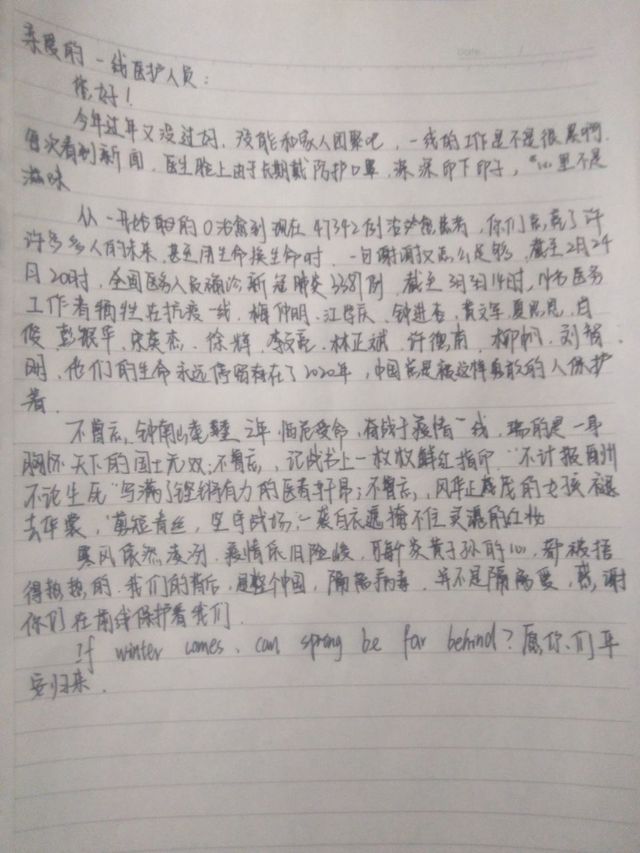 亲爱的一线医护人员：
您好！
今年过年又没过好，没能和家人团聚吧，一线的工作是不是很累啊
每次看到新闻，医生脸上由于长期戴防护口罩，深深印下印子，心里不是
滋味
从一开始的0治愈到现在47342例治愈患者，你们点亮了许
许多多人的未来，甚至用生命换生命时，一句谢谢又怎么足够，截至2月24
日20时，全国医务人员确诊新冠肺炎3387例，截至14时，医务
工作者牺牲在抗疫一线，梅仲明、江学庆、钟进杏、黄文军、夏思思、
俊、彭银华、宋英杰、徐辉、李文亮、林正斌、许德甫、柳帆、刘智
明，他们的生命永远停留在了2020年，中国总是被这样勇敢的人保护
着。
不曾忘，钟南山耄耋之年临危受命，奋战于疫情一线，端的是一身
胸怀天下的国士无双；不曾忘，记战书上一枚枚鲜红指印，"不计报酬
不论生死"写满了铿锵有力的医者轩昂；不曾忘，风华正茂的女孩褪
去华裳，剪短青丝，坚守战场，一袭白衣遮掩不住灵魂的红妆
寒风依然凌冽，疫情依旧险峻，可每个炎黄子孙的心，都被捂
得热热的，我们的背后，是整个中国，隔离病毒，并不是隔离爱，感谢
你们在前线保护着我们。
If winter comes, can spring be far behind? 愿你们平
安归来。